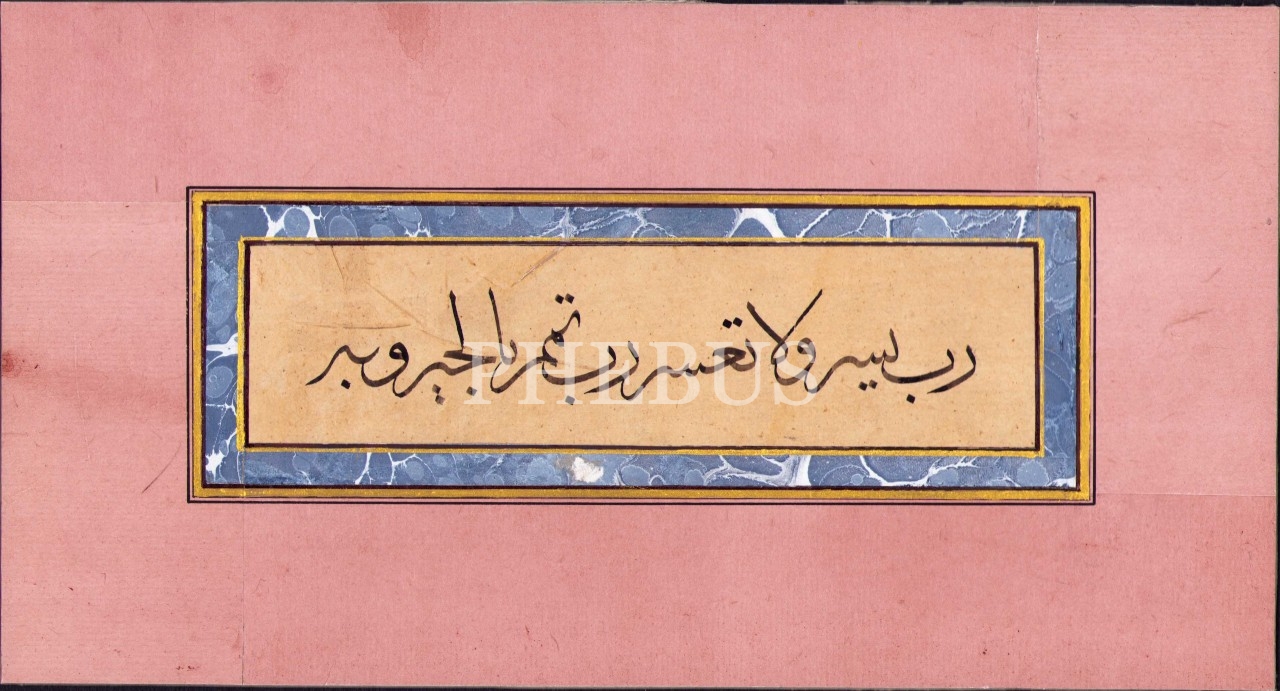 رب يسر ولا تعسر رب تمم بالخير وبه
PHEBUS